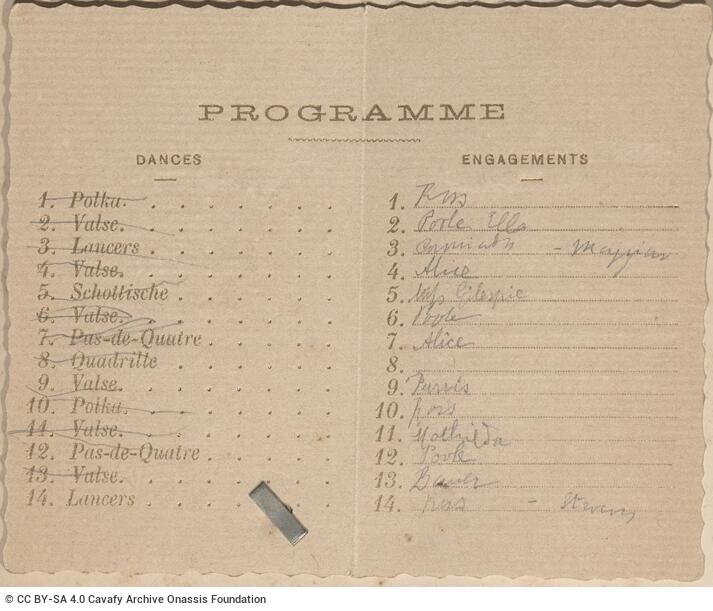 PROGRAMME
DANCES
1. Polka.
2. Valse.
3. Lancers
4. Valse.
5. Schottische
6. Valse.
7. Pas-de-Quatre
8. Quadrille
9. Valse.
10. Polka.
11. Valse.
12. Pas-de-Quatre
13. Valse.
14. Lancers
ENGAGEMENTS
1. Ross
2. Poole Ella
3.
4. Alice
5. Miss Gilespie
6. Poole
7. Alice
8.
9. Purvis
10. Ross
11. Mathilda
12. Poole
13. Bauer
14. Ross - Stevens
© CC BY-SA 4.0 Cavafy Archive Onassis Foundation